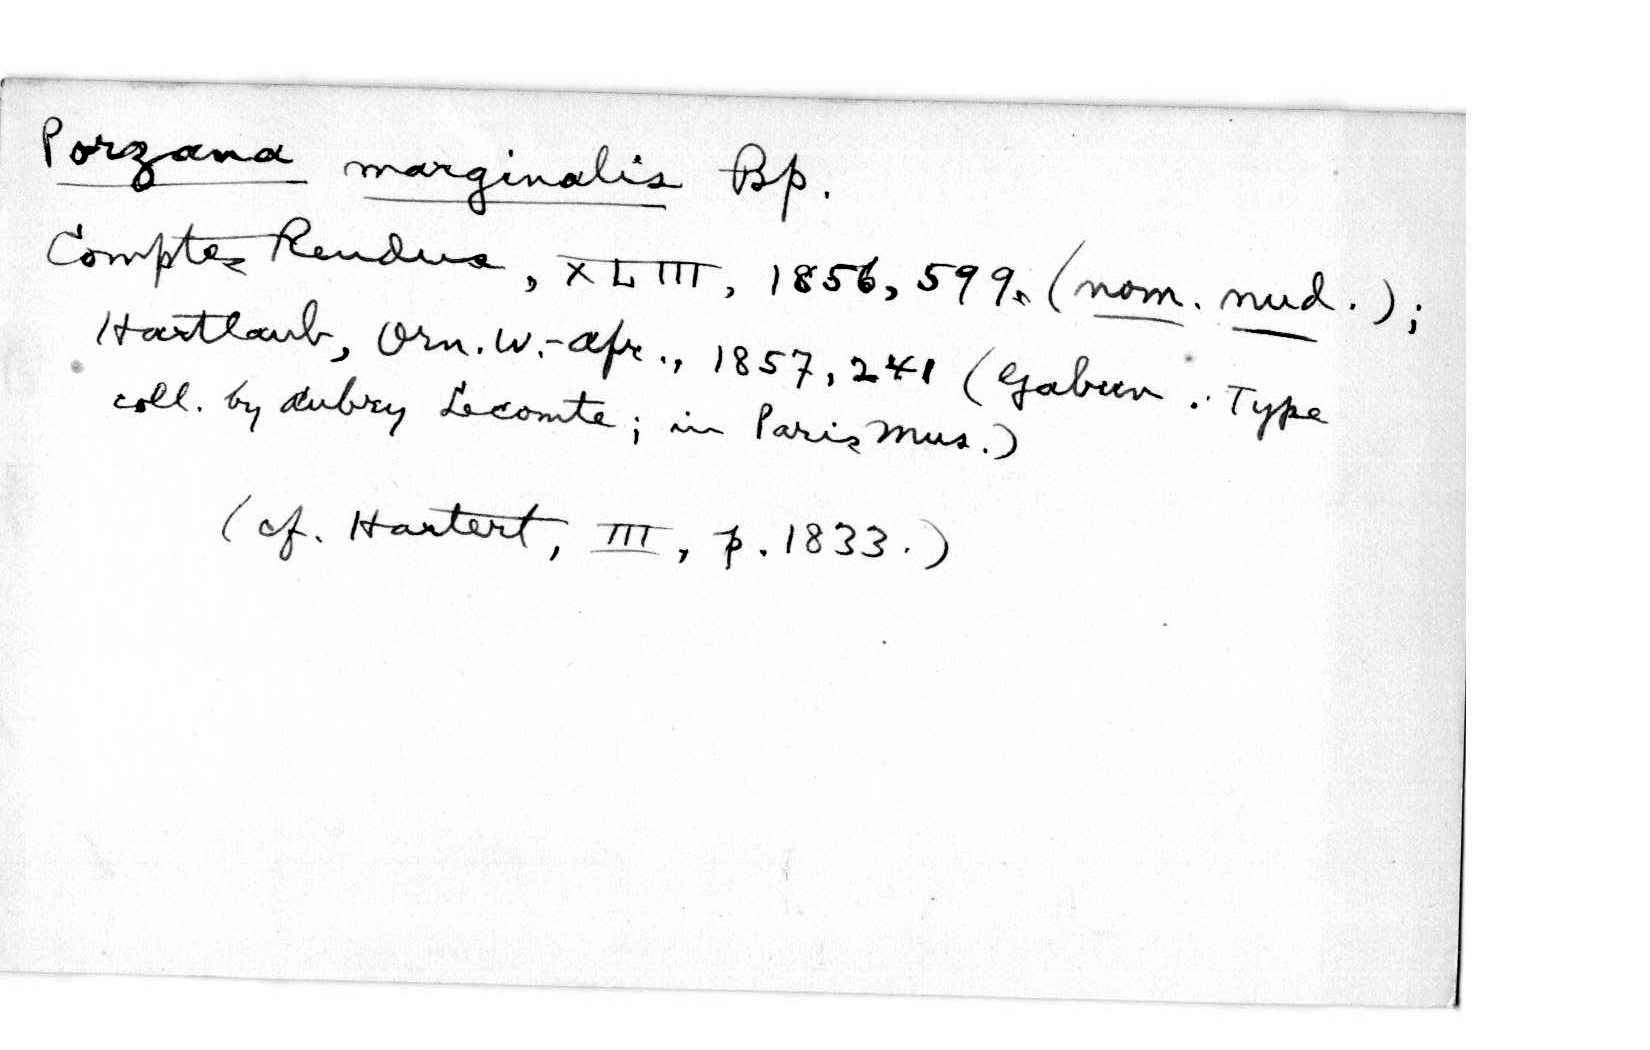 Porzana marginalis Bp.
Comptes Rendus, XLIII, 1856, 599. (nom. nud.);
Hartlaub, Orn. W.-Afr., 1857, 241 (Gabun. Type
coll. by Aubry Lecomte; in Paris Mus.)
(cf. Hartert, III, p. 1833.)